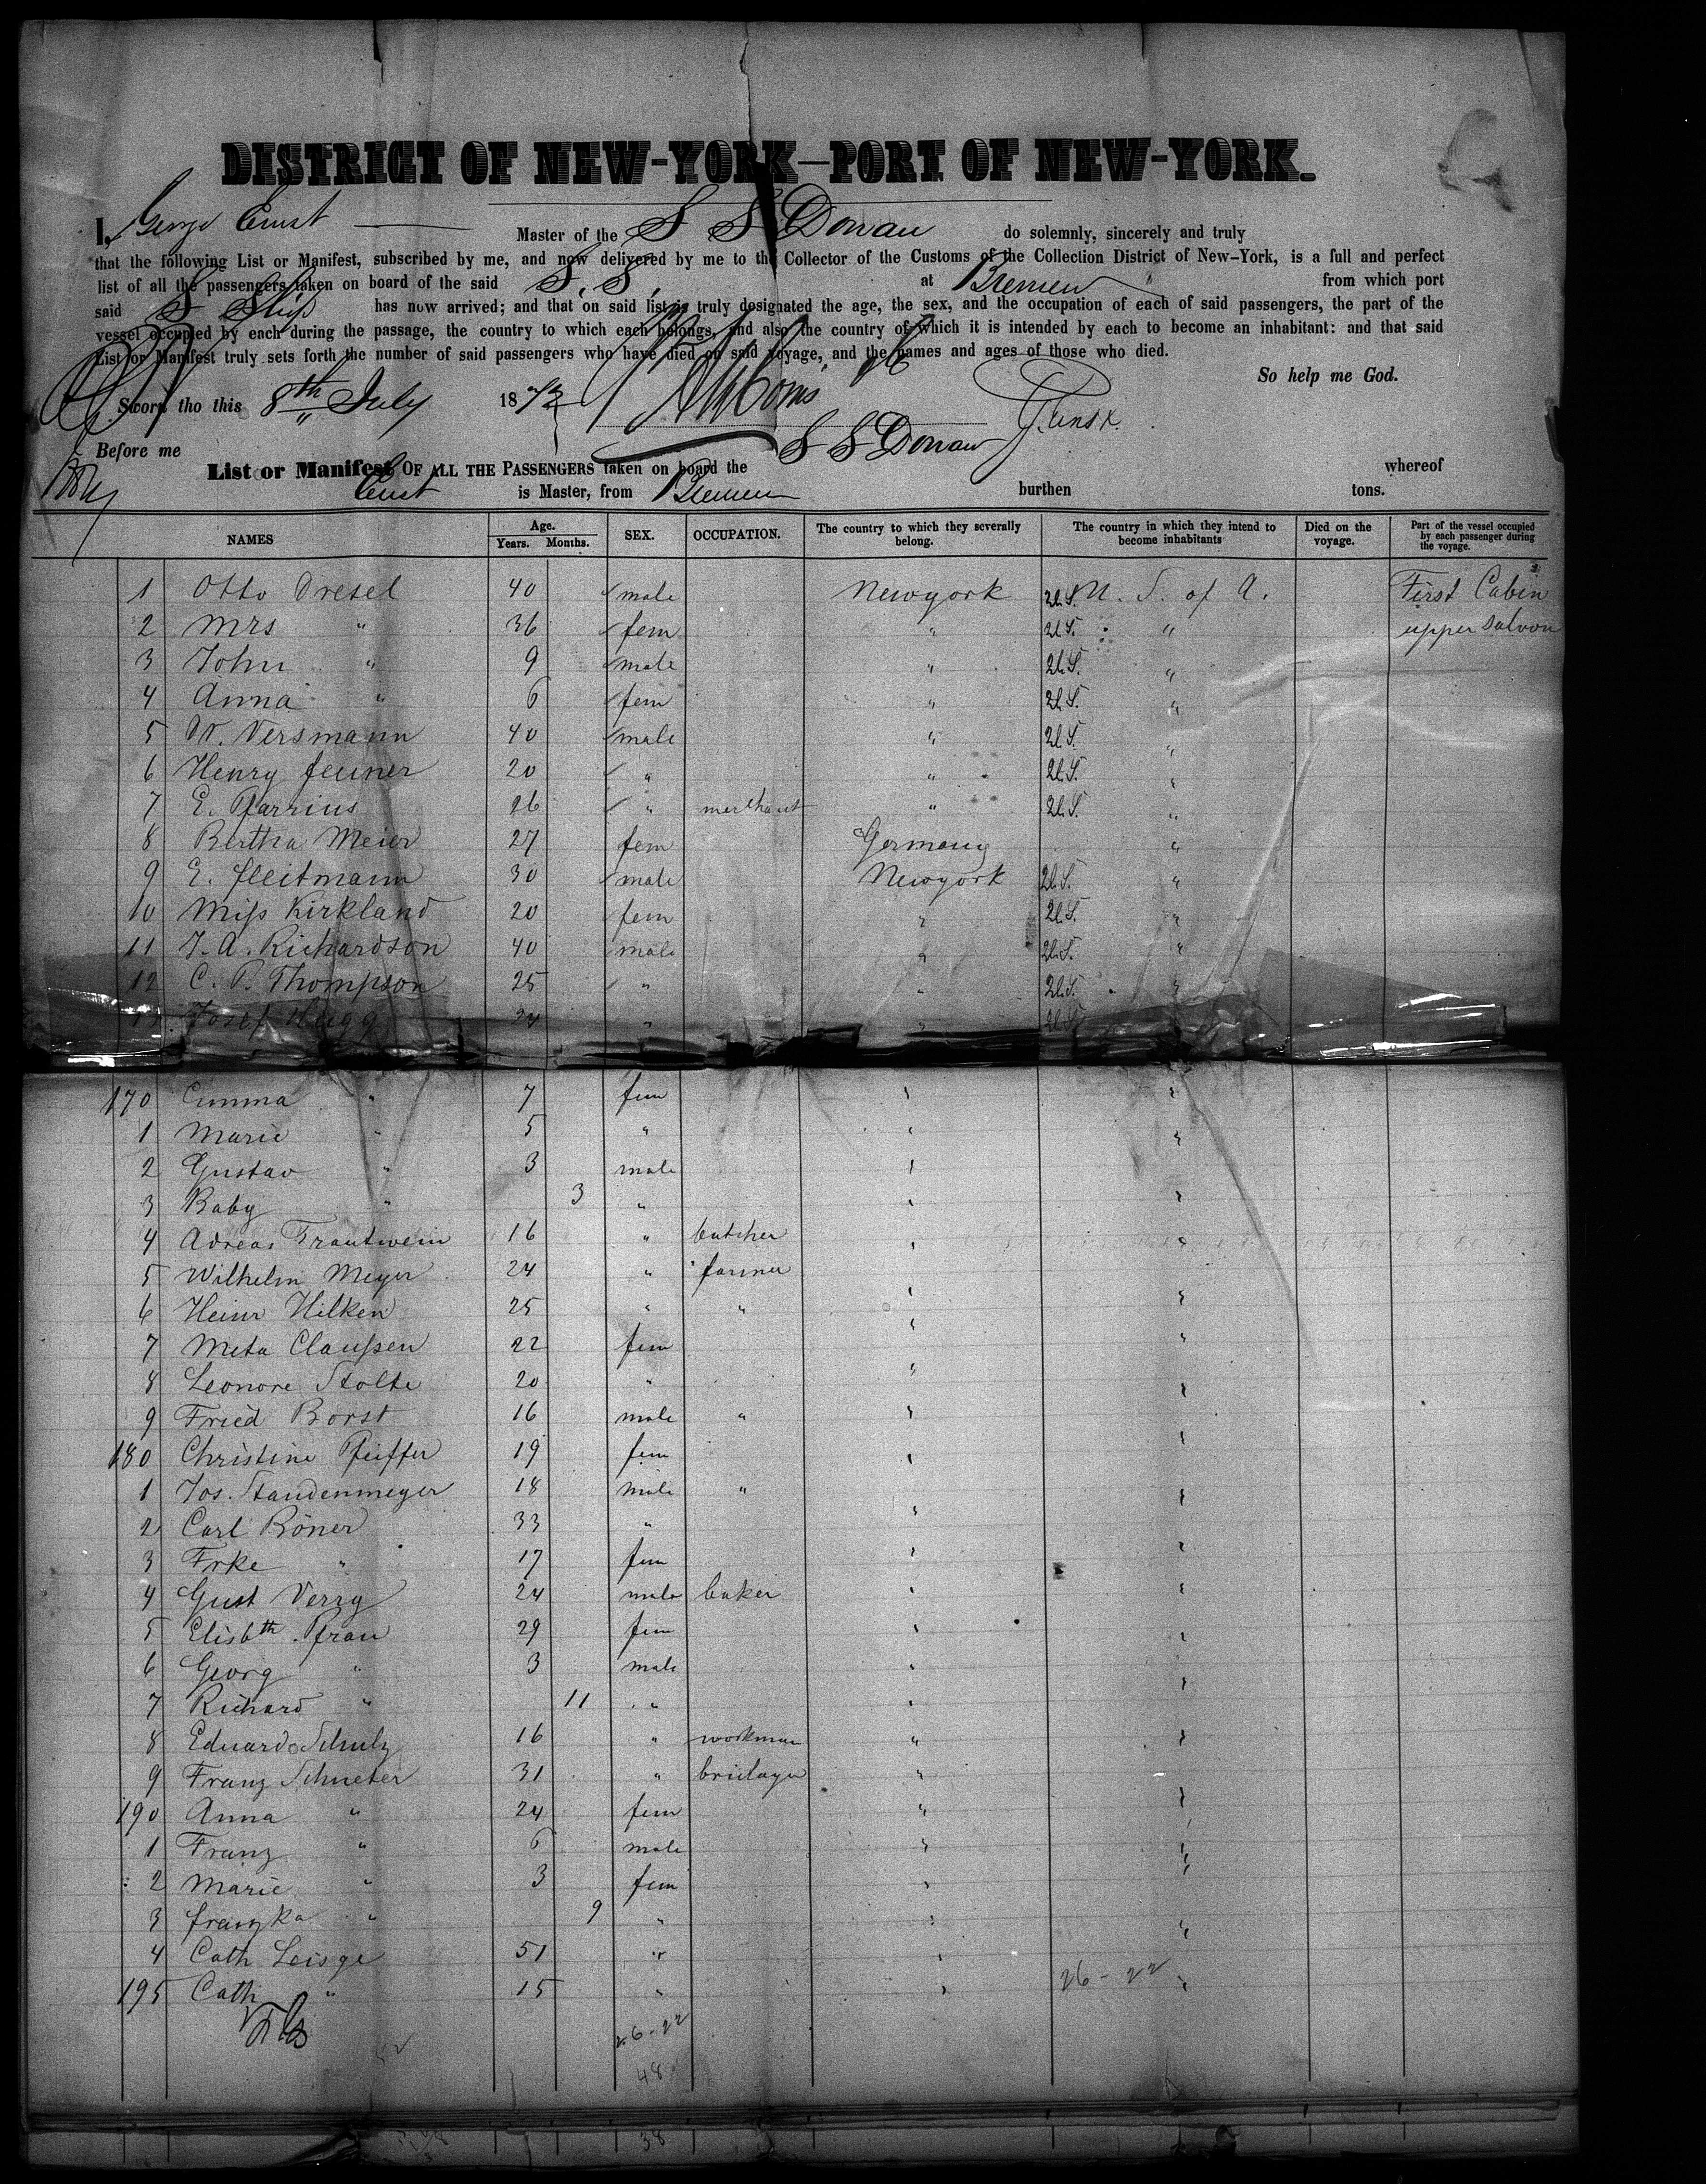 DISTRICT OF NEW-YORK—PORT OF NEW-YORK.
I, George Ernst Master of the S S Donau do solemnly, sincerely and truly
that the following List or Manifest, subscribed by me, and now delivered by me to the Collector of the Customs of the Collection District of New-York, is a full and perfect
list of all the passengers taken on board of the said S. S. at Bremen from which port
said S Ship has now arrived; and that on said list is truly designated the age, the sex, and the occupation of each of said passengers, the part of the
vessel occupied by each during the passage, the country to which each belongs, and also the country of which it is intended by each to become an inhabitant: and that said
List or Manifest truly sets forth the number of said passengers who have died on said voyage, and the names and ages of those who died.
So help me God.
Sworn tho this 8th July 1873
Before me
List or Manifest OF ALL THE PASSENGERS taken on board the S S Donau whereof
Ernst is Master, from Bremen burthen tons.
NAMES Age. Years. Months. SEX. OCCUPATION. The country to which they severally belong. The country in which they intend to become inhabitants Died on the voyage. Part of the vessel occupied by each passenger during the voyage.
1 Otto Dresel 40 male Newyork U.S. U. S. of A. First Cabin
2 Mrs " 36 fem " U.S. " upper saloon
3 John " 9 male " U.S. "
4 Anna " 6 fem " U.S. "
5 W. Versmann 40 male " U.S. "
6 Henry 20 " " U.S. "
7 E. 26 " merchant " U.S. "
8 Bertha Meier 27 fem Germany "
9 E. fleitmann 30 male Newyork U.S. "
10 Miss Kirkland 20 fem " U.S. "
11 J. A. Richardson 40 male " U.S. "
12 C. P. Thompson 25 " " U.S. "
13 Josef Hugg 34 " " U.S.
170 Emma " 7 fem " "
1 Marie " 5 " " "
2 Gustav " 3 male "
3 Baby " 3 " " "
4 Adreas Trautwein 16 " butcher " "
5 Wilhelm Meyer 24 " farmer "
6 Heinr Hilken 25 " " " "
7 Meta Claussen 22 fem " "
8 Leonore Stolte 20 " " "
9 Fried Borst 16 male " "
180 Christine Pfeiffer 19 fem " "
1 Jos. Standenmeyer 18 male " "
2 Carl Böner 33 " "
3 Frke " 17 fem " "
4 Gust Verzy 24 male baker " "
5 Elisbth. Pfrau 29 fem " "
6 Georg " 3 male "
7 Richard " 11 " " "
8 Eduard Schulz 16 " workman " "
9 Franz Schneter 31 " briclayer "
190 Anna " 24 fem " "
1 Franz " 6 male " "
2 Marie " 3 fem " "
3 franzka " 9 " "
4 Cath Leisge 51 " " "
195 Cath " 15 " " "
26 - 22
26-22
48
38